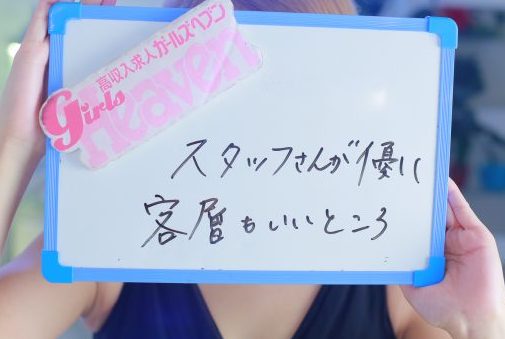 高収入求人ガールズヘブン
Girls
Heaven
スタッフさんが優しく
客層もいいところ